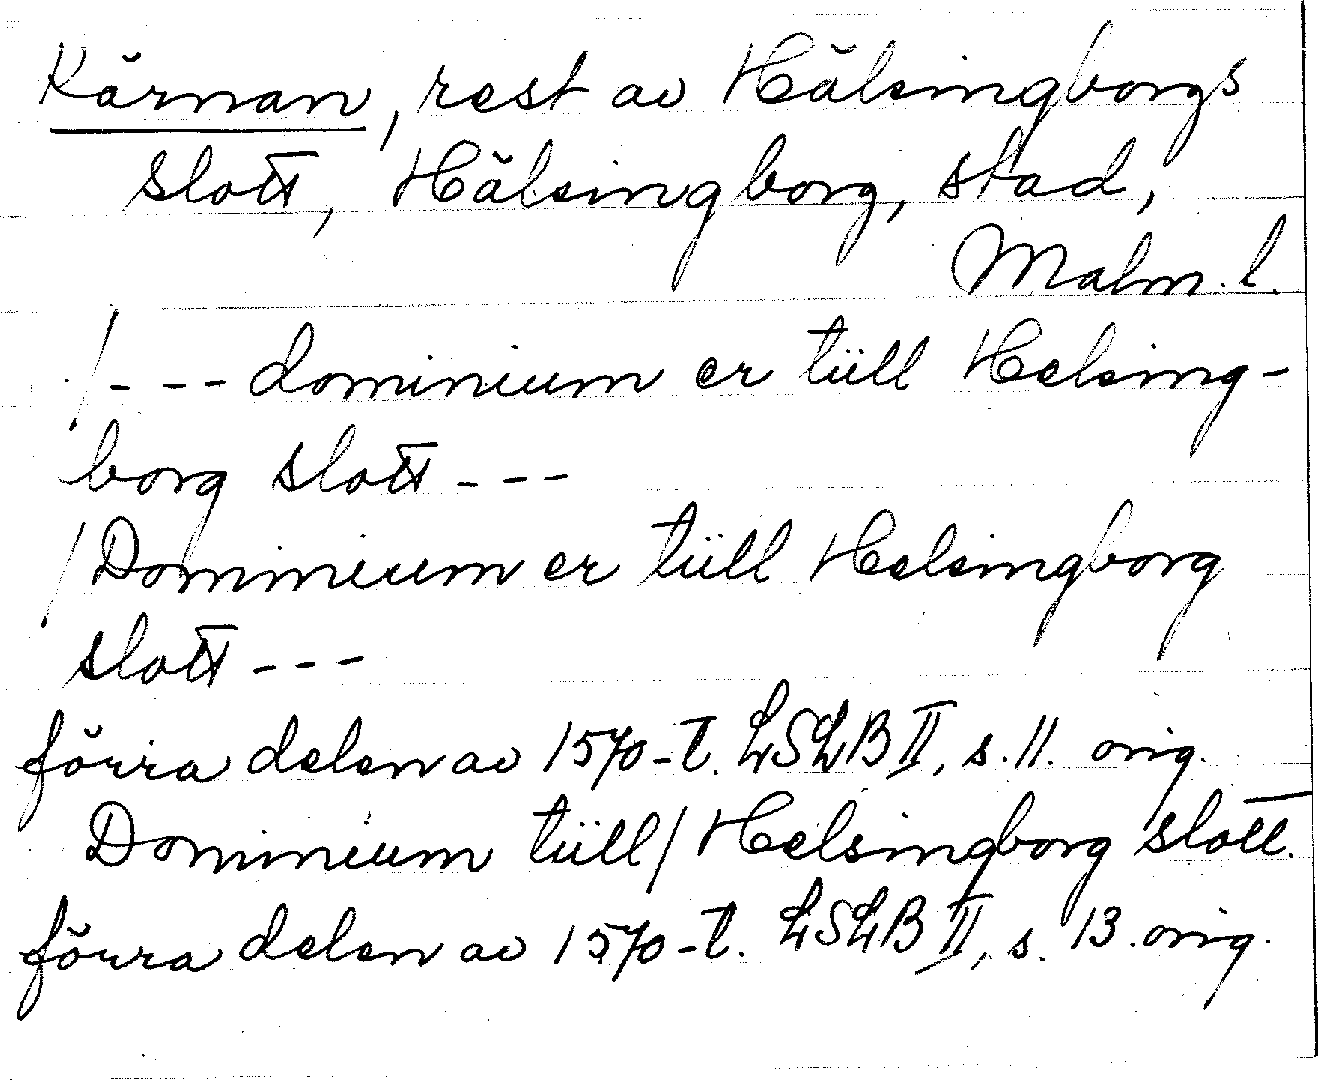 Kärnan, rest av Hälsingborgs
slott, Hälsingborg, stad,
Malm. l.
/--- dominium er tüll Helsing-
borg slott ---
/Dominium er tüll Helsingborg
slott ---
förra delen av 1570-t. LSLB II, s. 11. orig.
Dominium tüll/Helsingborg slott.
förra delen av 1570-t. LSLB II, s. 13. orig.